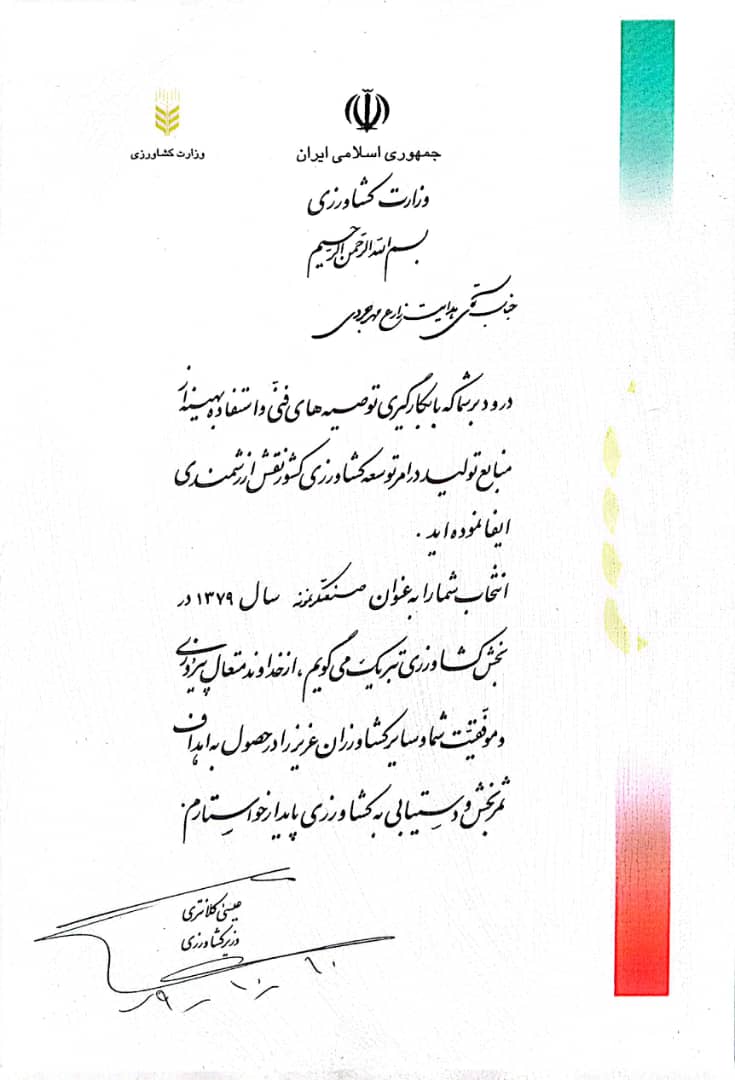 جمهوری اسلامی ایران
وزارت کشاورزی
وزارت کشاورزی
بسم الله الرحمن الرحیم
جناب آقای هدایت زارع مهرجردی
درود بر شما که با بکارگیری توصیه های فنی و استفاده بهینه از
منابع تولید در امر توسعه کشاورزی کشور نقش ارزشمندی
ایفا نموده اید .
انتخاب شما را به عنوان صنعتگر نمونه سال ۱۳۷۹ در
بخش کشاورزی تبریک می گویم ، از خداوند متعال پیروزی
و موفقیت شما و سایر کشاورزان عزیز را در حصول به اهداف
ثمربخش و دستیابی به کشاورزی پایدار خواستارم .
عیسی کلانتری
وزیر کشاورزی